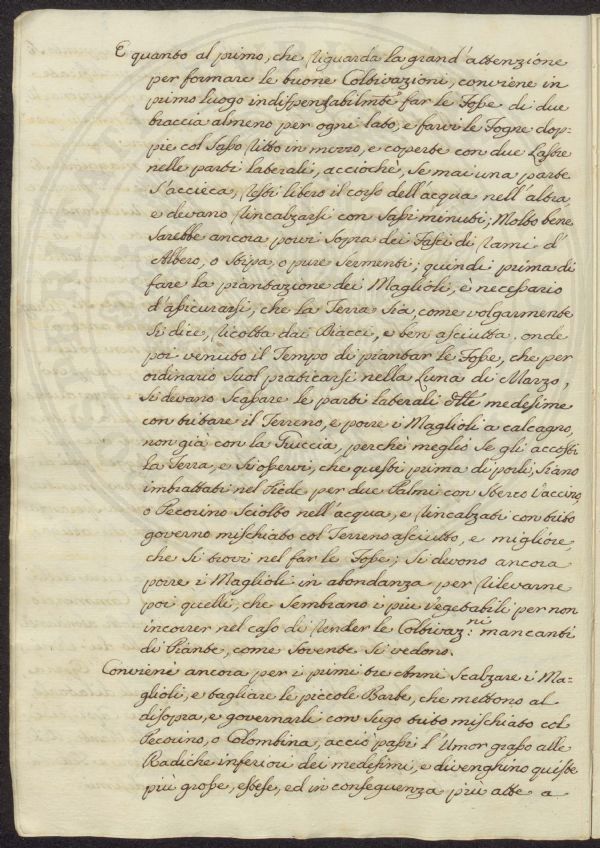 E quanto al primo, che riguarda la grand'attenzione
per formare le buone Coltivazioni, conviene in
primo luogo indispensabilmte far le Fosse di due
braccia almeno per ogni lato, e farvi le Fogne dop=
pie col Sasso ritto in mezzo, e coperte con due Lastre
nelle parti laterali, acciochè, se mai una parte
s'accieca, resti libero il corso dell'acqua nell'altra,
e devano rincalzarsi con Sassi minuti; Molto bene
sarebbe ancora porvi sopra dei Fasci di rami d'
Albero, o Stipa, o pure Sermenti; quindi prima di
fare la piantazione dei Maglioli, è necessario
d'assicurarsi, che la Terra sia, come volgarmente
si dice, ricotta dai Diacci, e ben asciutta. onde
poi venuto il Tempo di piantar le Fosse, che per
ordinario suol praticarsi nella Luna di Marzo,
si devano scassare le parti laterali delle medesime
con tritare il Terreno, e porre i Maglioli a calcagno,
non già con la Gruccia, perchè meglio se gli accosti
la Terra, e si osservi, che questi prima di porli, siano
imbrattati nel Piede per due Palmi con Sterco vaccino,
o Pecorino sciolto nell'acqua, e rincalzati con trito
governo mischiato col Terreno asciutto, e migliore,
che si trovi nel far le Fosse; si devono ancora
porre i Maglioli in abondanza per rilevarne
poi quelli, che sembrano i più vegetabili per non
incorrer nel caso di render le Coltivaz:ni mancanti
di Piante, come sovente si vedono.
Conviene ancora per i primi tre Anni scalzare i Ma=
glioli, e tagliare le piccole Barbe, che mettono al
disopra, e governarli con Sugo trito mischiato col
Pecorino, o Colombina, acciò passi l'Umor grasso alle
Radiche inferiori dei medesimi, e divenghino queste
più grosse, estese, ed in conseguenza più atte a